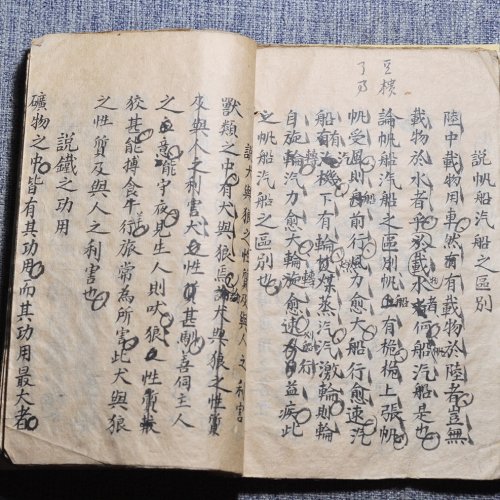 豆
了
說帆船汽船之區別
陸中載物用車然有有載物於陸者豈無
載物於水者乎載水者何船汽船是也
論帆船汽船之區別帆有桅桅上張帆
帆受風則身前行風力愈大船行愈速汽
船有機下有輪以煤蒸汽汽激輪則輪
自旋輪汽力愈大輪旋愈速船行益疾此
之帆船汽船之區別也
說犬與狼之性質及與人之利害
獸類之中有犬與狼焉論犬與狼之性質
來與人之利害犬性質甚馴善伺主人
之意能守夜見生人則吠狼之性質
狡甚能搏食牛行旅常為所害此犬與狼
之性質及與人之利害也
說鐵之功用
礦物之中皆有其功用而其功用最大者